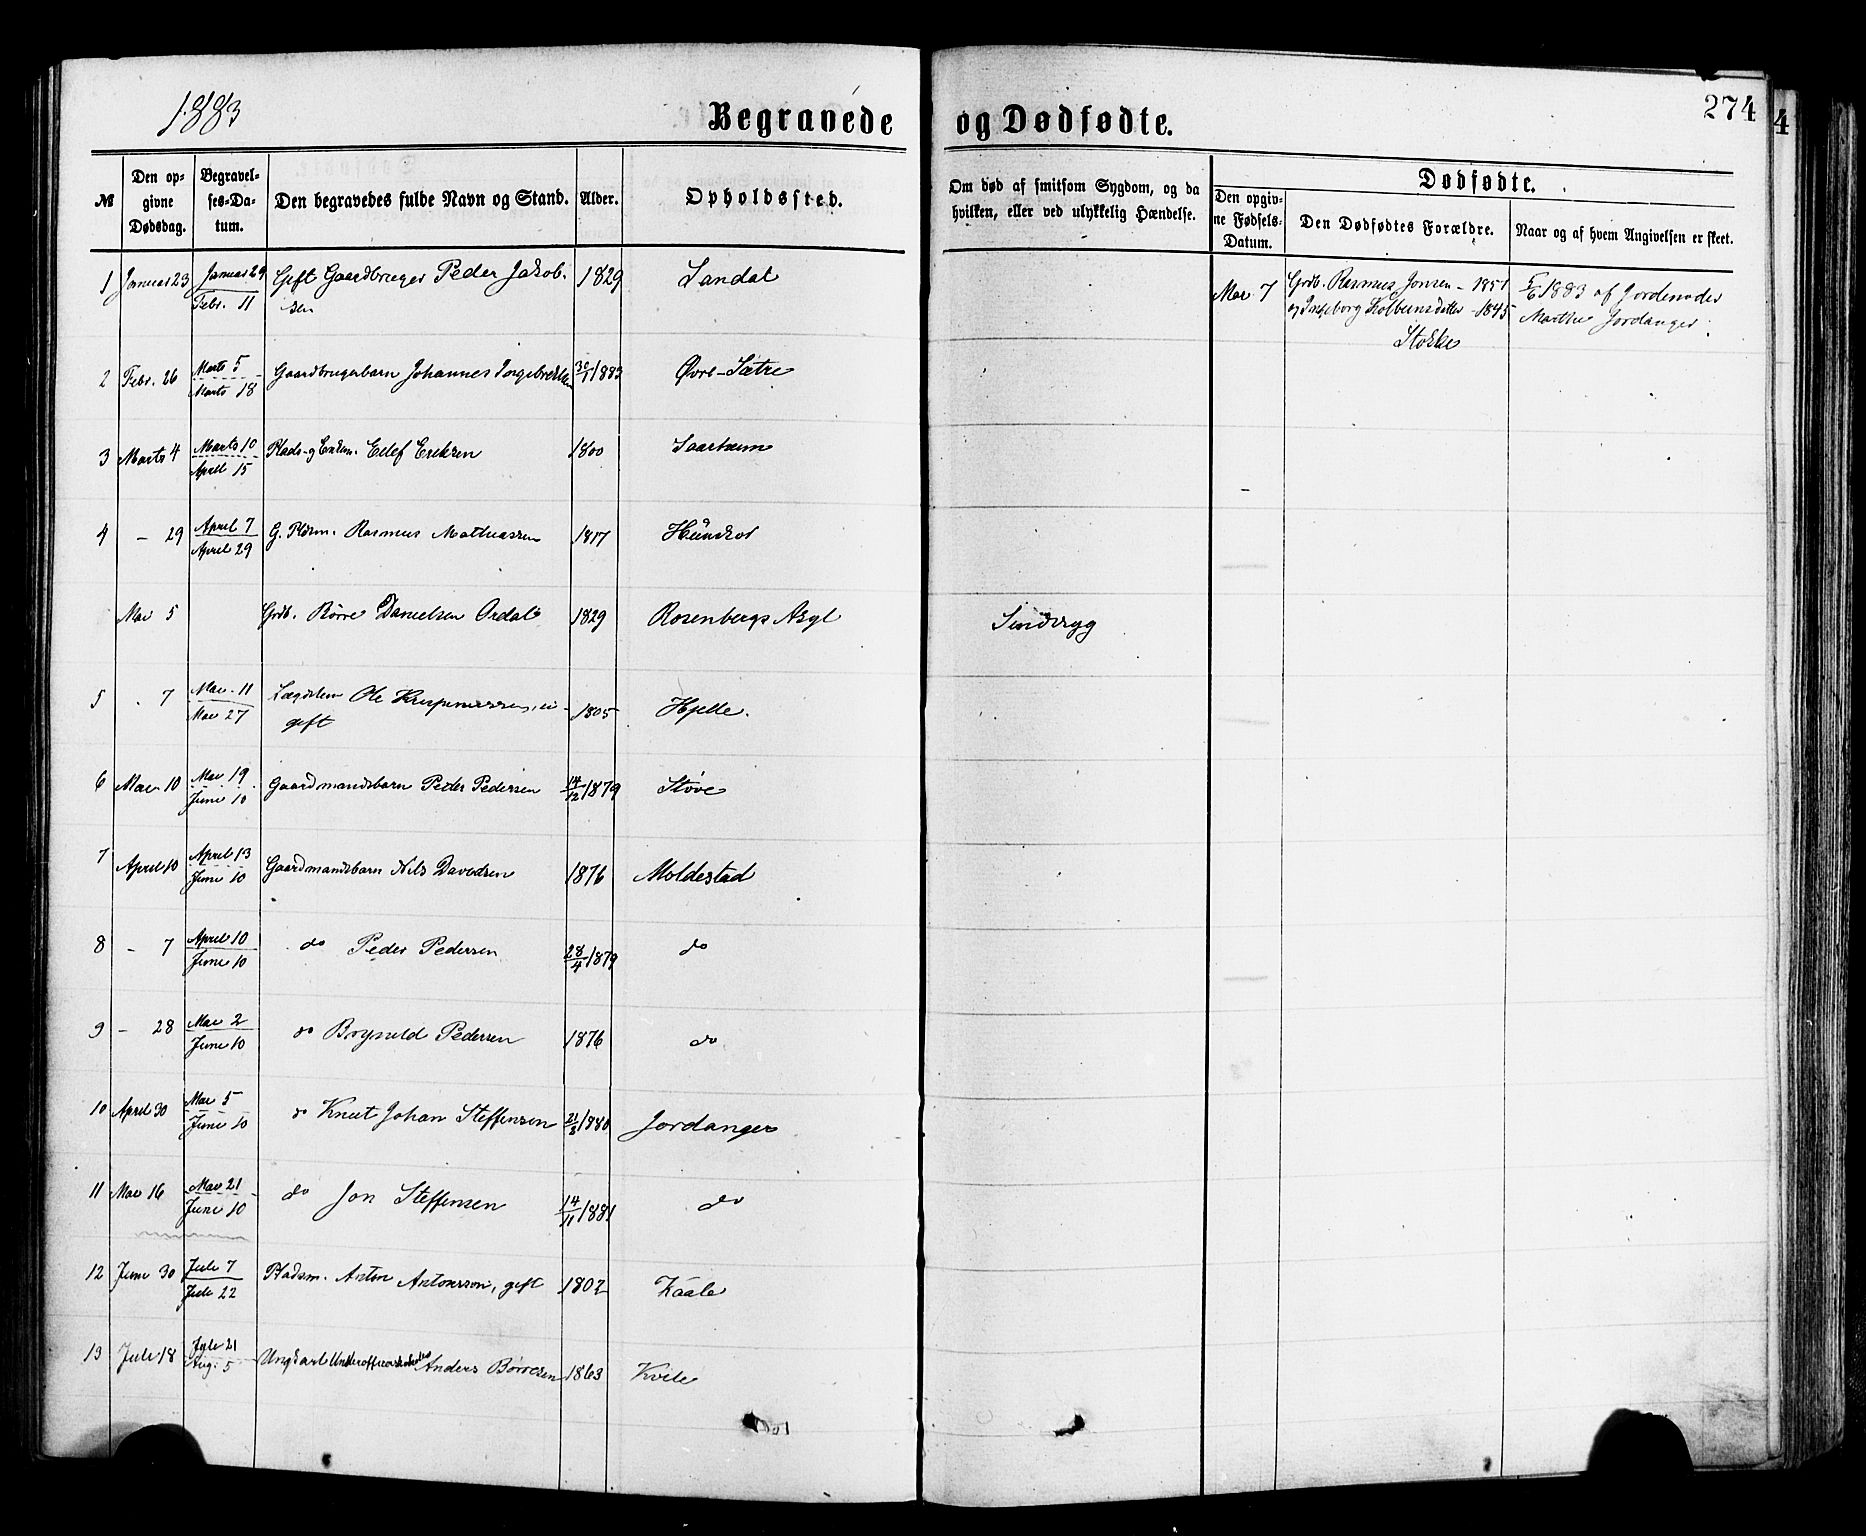 1883
Begravede og Dødfødte.
274
4
№
Den opgivne Dødsdag.
Begravelses-Datum.
Den begravedes fulde Navn og Stand.
Alder.
Opholdssted.
Om død af smitsom Sygdom, og da hvilken, eller ved ulykkelig Hændelse.
Dødfødte.
Den opgivne Fødsels-Datum.
Den Dødfødtes Forældre.
Naar og af hvem Angivelsen er skeet.
1 Januar 23 Januar 29 Febr. 11 Gift Gaardbruger Peder Jakobsen 1829 Sandal
Mai 7 Grdb. Rasmus Jonsen - 1851 og Ingeborg Kolbeinsdatter - 1845 1883 af Jordemoder Marthe Jordanger.
2 Febr. 26 Marts 5 Marts 18 Gaardbrugerbarn Johannes 30/1 1883 Øvre-Sætre
3 Marts 4 Marts 10 April 15 Plads- og Enkem. Elef Eriksen 1800 Saarheim
4 - 29 April 7 April 29 G. Pldsm. Rasmus Mathiassen 1817
Mai 5 Grdb. Børre Danielsen Ordal 1829 Rosenbergs Asyl Sindssyg
5 . 7 Mai 11 Mai 27 Lægdslem Ole ugift 1805 Hjelle.
6 Mai 10 Mai 19 Juni 10 Gaardmandsbarn Peder Pedersen 14/12 1879 Støve
7 April 10 April 13 Juni 10 Gaardmandsbarn Nils Davidsen 1876 Moldestad
8 - 7 April 10 Juni 10 do Peder Pedersen 28/4 1879 do
9 - 28 Mai 2 Juni 10 do Brynild Pedersen 1876 do
10 April 30 Mai 5 Juni 10 do Knut Johan Steffensen 21/3 1880 Jordanger
11 Mai 16 Mai 21 Juni 10 do Jon Steffensen 14/11 1881 do
12 Juni 30 Juli 7 Juli 22 Pladsm. Anton Antonsson, gift 1802 Kaale
13 Juli 18 Jyli 21 Aug. 5 Ungkarl Anders Børresen 1863 Kvile